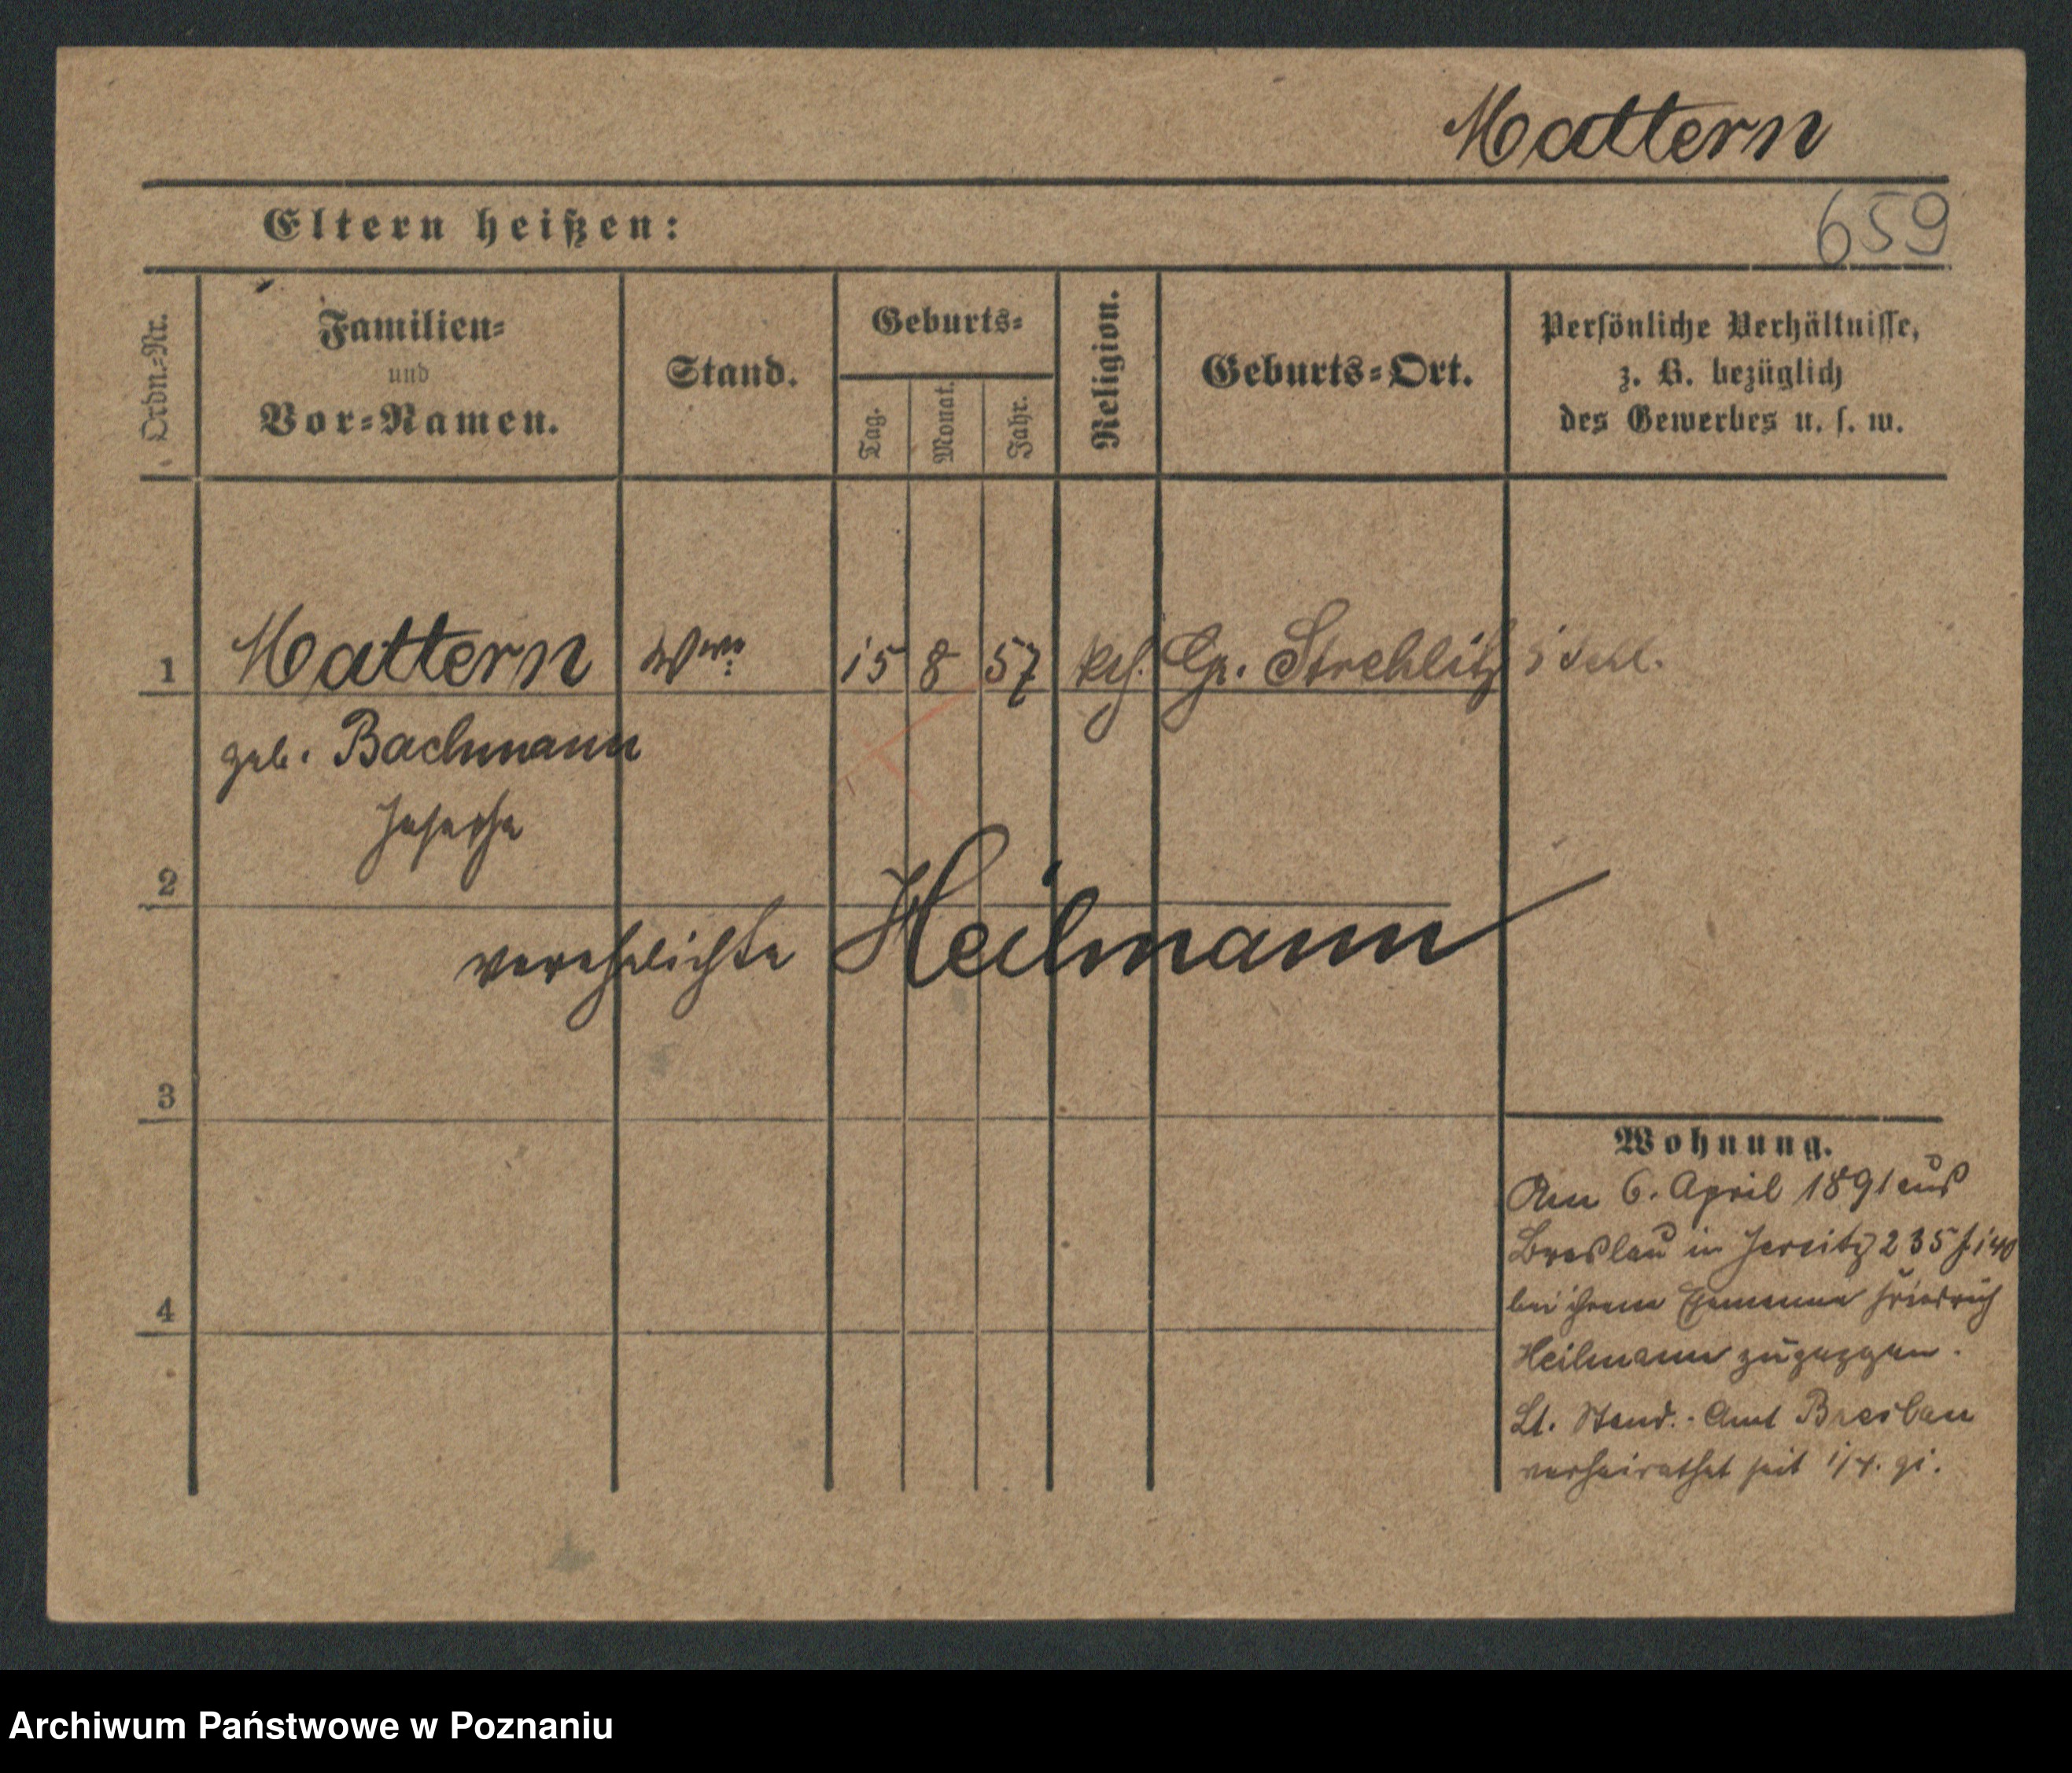 Mattern
Eltern heißen:
659
Ordn.-Nr.
Familien-
und
Vor-Namen.
Stand.
Geburts-
Tag.
Monat.
Jahr.
Religion.
Geburts-Ort.
Persönliche Verhältnisse,
z. B. bezüglich
des Gewerbes u. s. w.
1 Mattern Wwe 15 8 57 kth. Gr. Strehlitz
geb. Bachmann
Josepha
2
verehelichte Heilmann
3
4
Wohnung.
Am 6. April 1891 aus
Breslau in Jersitz 235
bei ihrem Ehemanne Friedrich
Heilmann zugezogen.
Lt. Stand.-Amt Breslau
verheirathet seit 1/4. 91.
Archiwum Państwowe w Poznaniu